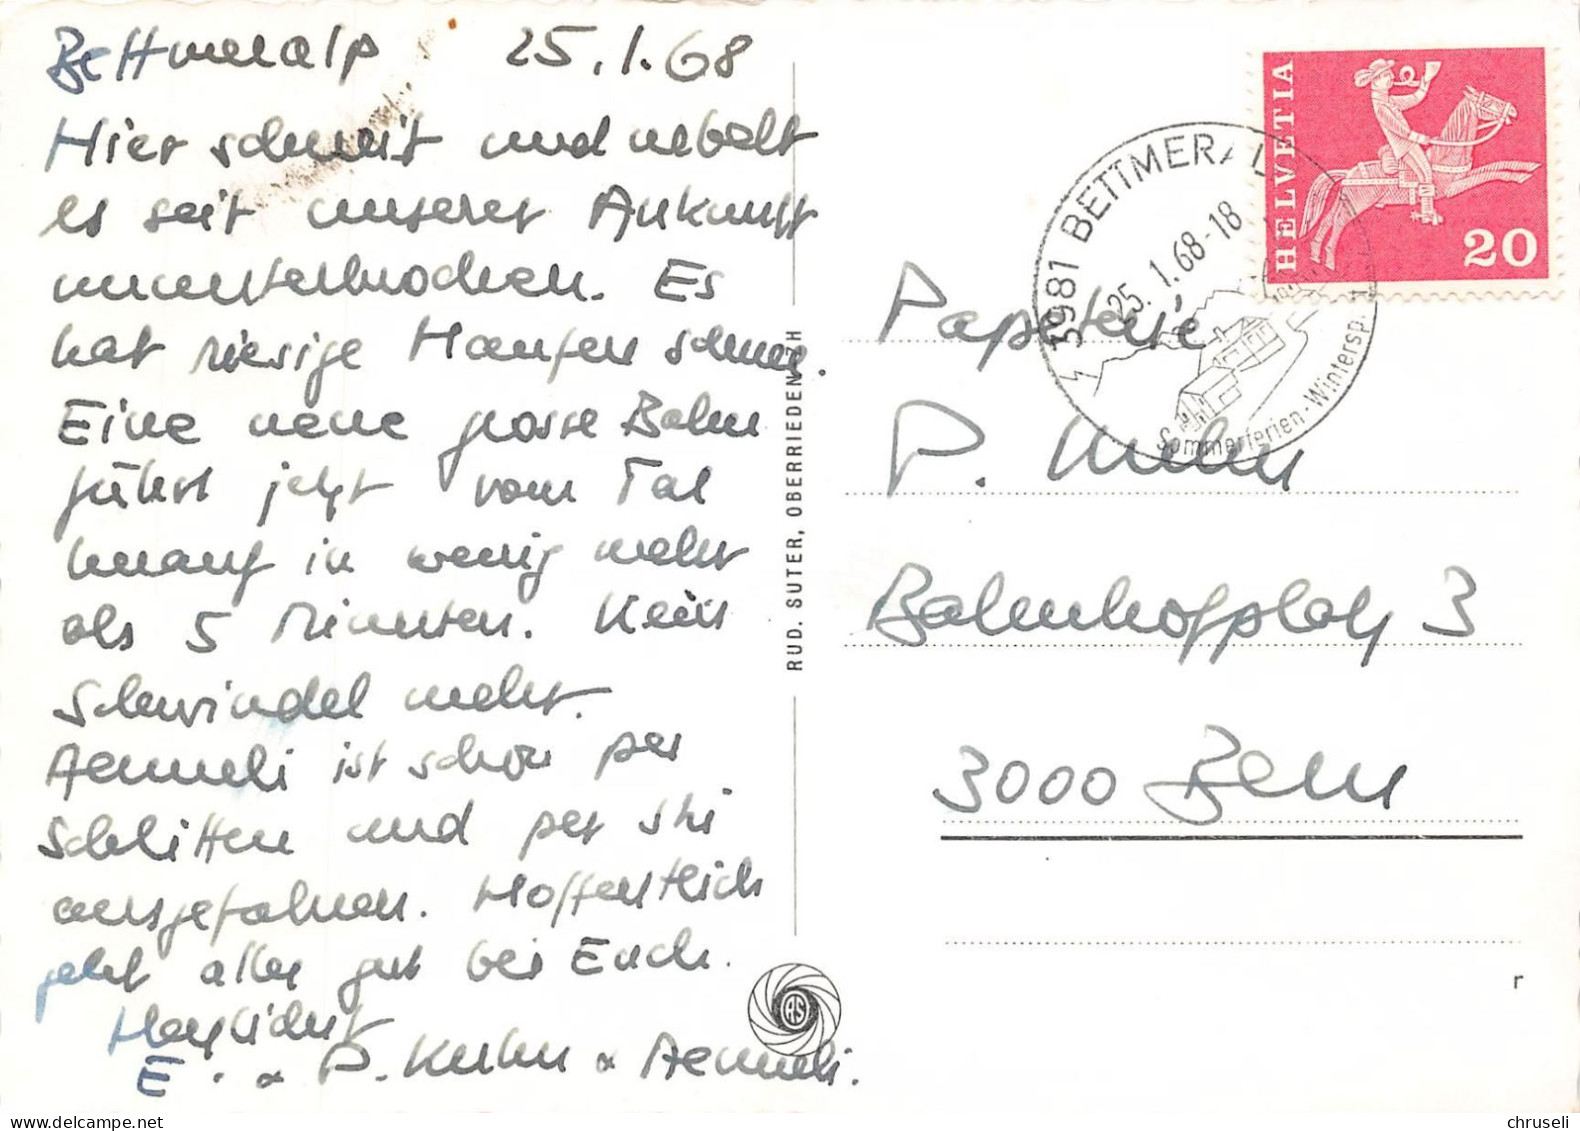 Bettmeralp 25.1.68
Hier schneit und nebelt
es seit unserer Ankunft
ununterbrochen. Es
hat riesige Haufen Schnee.
Eine neue grosse Bahn
führt jetzt vom Tal
herauf in wenig mehr
als 5 Minuten. Kein
Schwindel mehr.
Aenneli ist schon per
Schlitten und per Ski
ausgefahren. Hoffentlich
geht alles gut bei Euch.
Herzlichst
E. & P. Kuhn & Aenneli.
RUD. SUTER, OBERRIEDEN-ZH
RS
HELVETIA
20
3981 BETTMERAL
25.1.68-18
Sommerferien-Wintersp.
Papeterie
P. Kuhn
Bahnhofplatz 3
3000 Bern
r
chruseli